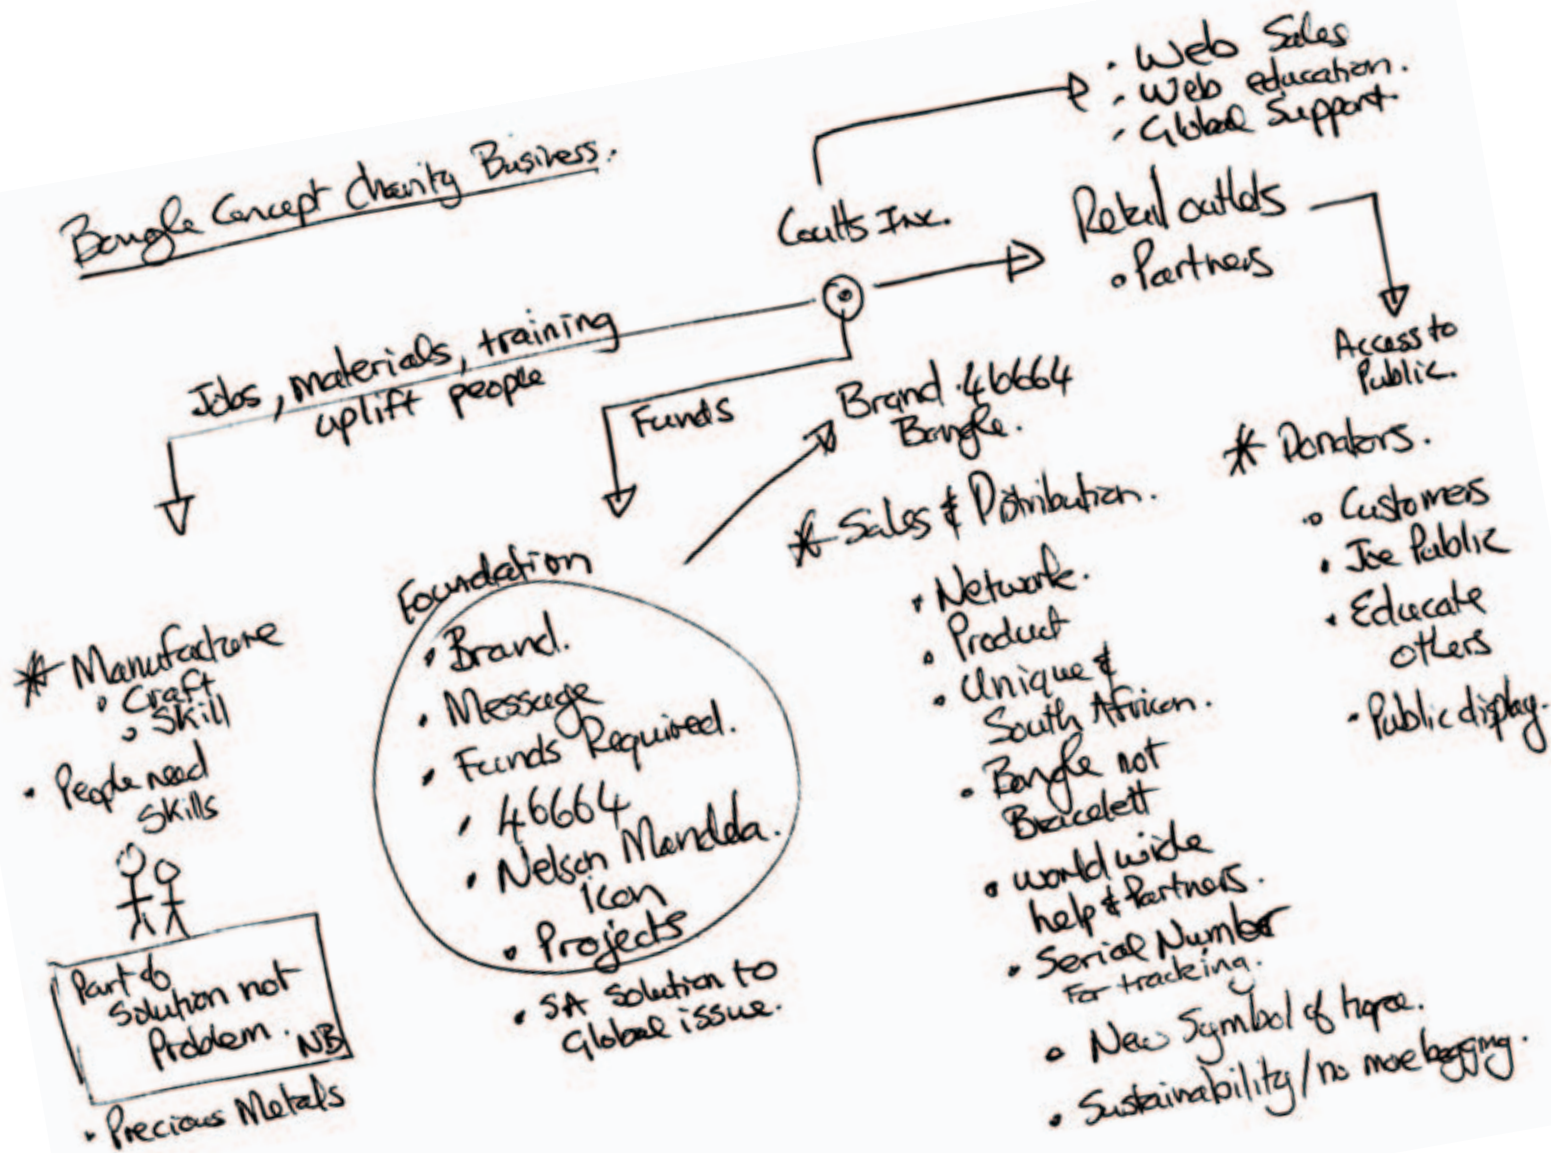 Bangle Concept Charity Business.
• Web Sales
• Web education.
• Global Support.
Coutts Inc.
Retail outlets
• Partners
Access to
Public.
Jobs, materials, training
uplift people
Funds
Brand 46664
Bangle.
* Manufacture
• Craft
• Skill
• People need
Skills
Part of
Solution not
Problem. NB
• Precious Metals
Foundation
• Brand.
• Message
• Funds Required.
• 46664
• Nelson Mandela.
icon
• Projects
• SA Solution to
Global issue.
* Sales & Distribution.
• Network.
• Product
• Unique &
South African.
• Bangle not
Bracelett
• World wide
help & Partners.
• Serial Number
For tracking.
• New Symbol of hope.
• Sustainability/no more begging.
* Donators.
• Customers
• Joe Public
• Educate
others
• Public display.